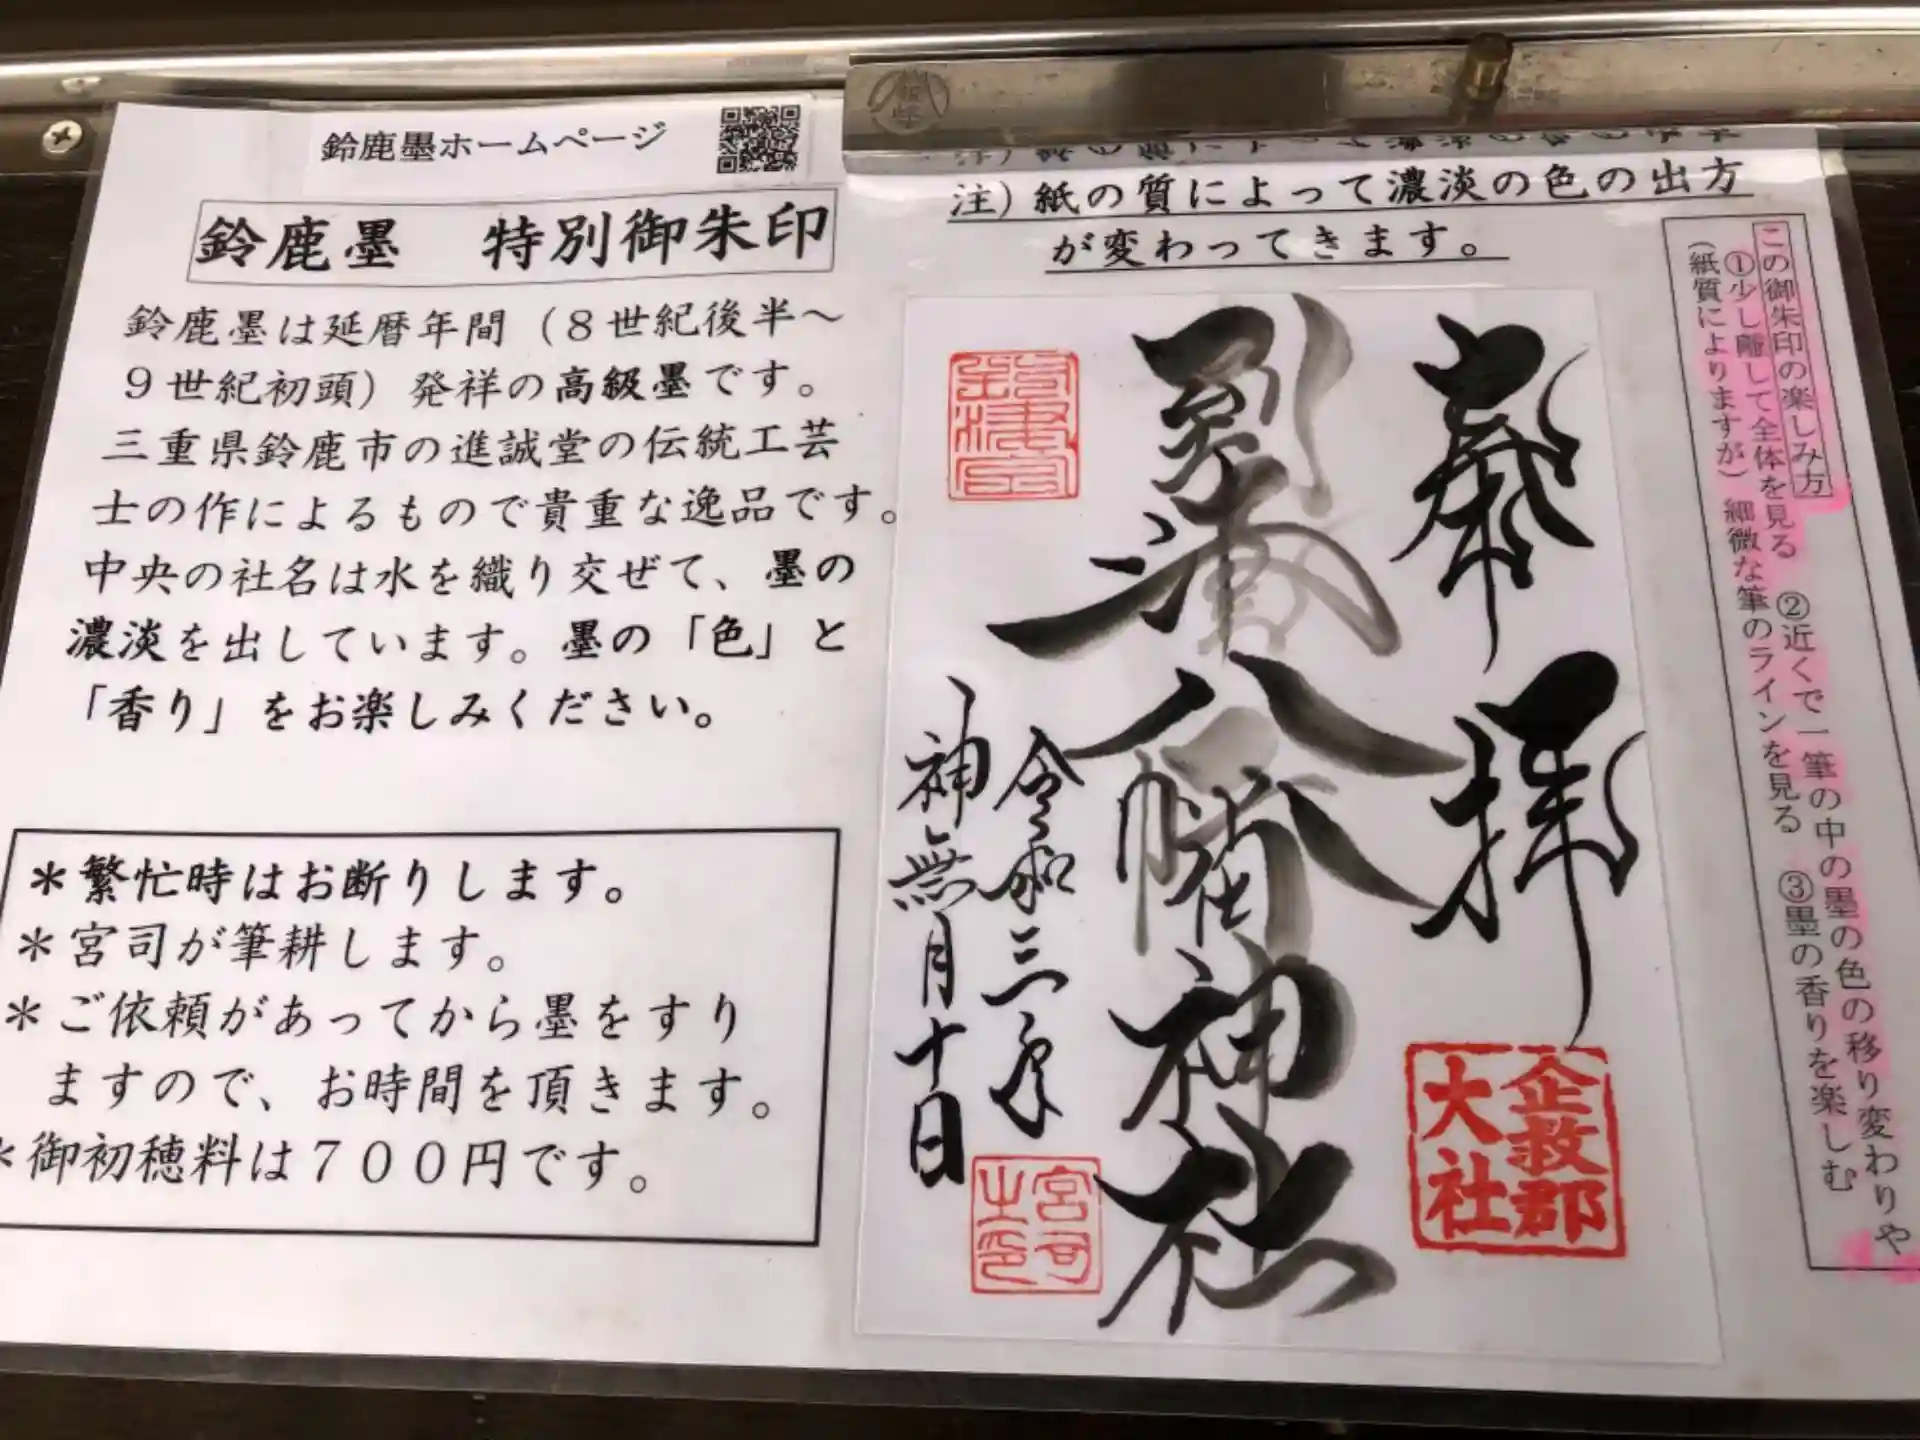 鈴鹿墨ホームページ
鈴鹿墨 特別御朱印
鈴鹿墨は延暦年間（８世紀後半～
９世紀初頭）発祥の高級墨です。
三重県鈴鹿市の進誠堂の伝統工芸
士の作によるもので貴重な逸品です。
中央の社名は水を織り交ぜて、墨の
濃淡を出しています。墨の「色」と
「香り」をお楽しみください。
＊繁忙時はお断りします。
＊宮司が筆耕します。
＊ご依頼があってから墨をすり
ますので、お時間を頂きます。
＊御初穂料は７００円です。
注）紙の質によって濃淡の色の出方
が変わってきます。
この御朱印の楽しみ方
①少し離して全体を見る ②近くで一筆の中の墨の色の移り変わりや
（紙質によりますが）細微な筆のラインを見る ③墨の香りを楽しむ
奉拝
企救郡
大社
八幡神社
令和三年
神無月十日
宮司
之印